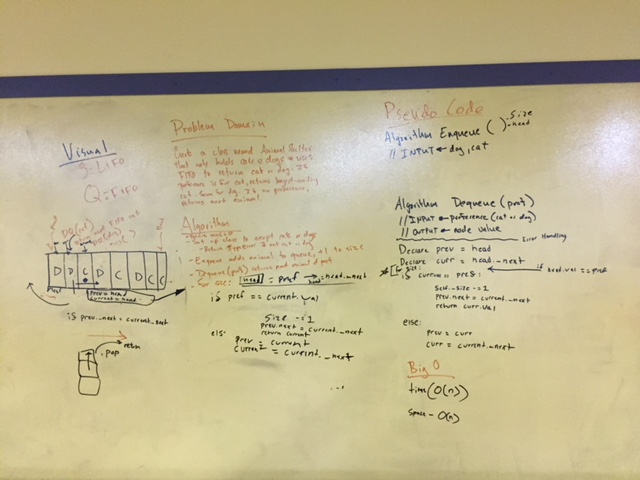 Visual
S=LIFO
Q=FIFO
D D C D C D C C
prev = head
current = head.
is prev._next = current._next
.pop
retrn
Problem Domain
Creat a class named Animal Shelter
that only holds cats & dogs & uses
FIFO to return cat or dog. If
preference is for cat, returns longest waiting
cat. Same for dog. If no preference,
returns next animal.
Algorithm
- Set up class to accept cats or dogs
- Return Type error if not cat or dog
- Enqueue adds animal to queue, +1 to size
- Dequeue (pref) returns next animal of pref
head = pref → head = head._next
is pref == current.val
Size -= 1
prev.next = current._next
return current
else:
prev = current
current = current._next
...
Pseudo Code
Algorithm Enqueue ( )
-size
-head
// INPUT ← dog, cat
Algorithm Dequeue (pref)
// INPUT ← preference (cat or dog)
// OUTPUT ← node value
Error Handling
Declare prev = head
Declare curr = head._next
if head.val == pref
is current = pref:
self._size -= 1
prev.next = current._next
return curr.val
else:
prev = curr
curr = current._next
Big O
time (O(n))
space - O(n)